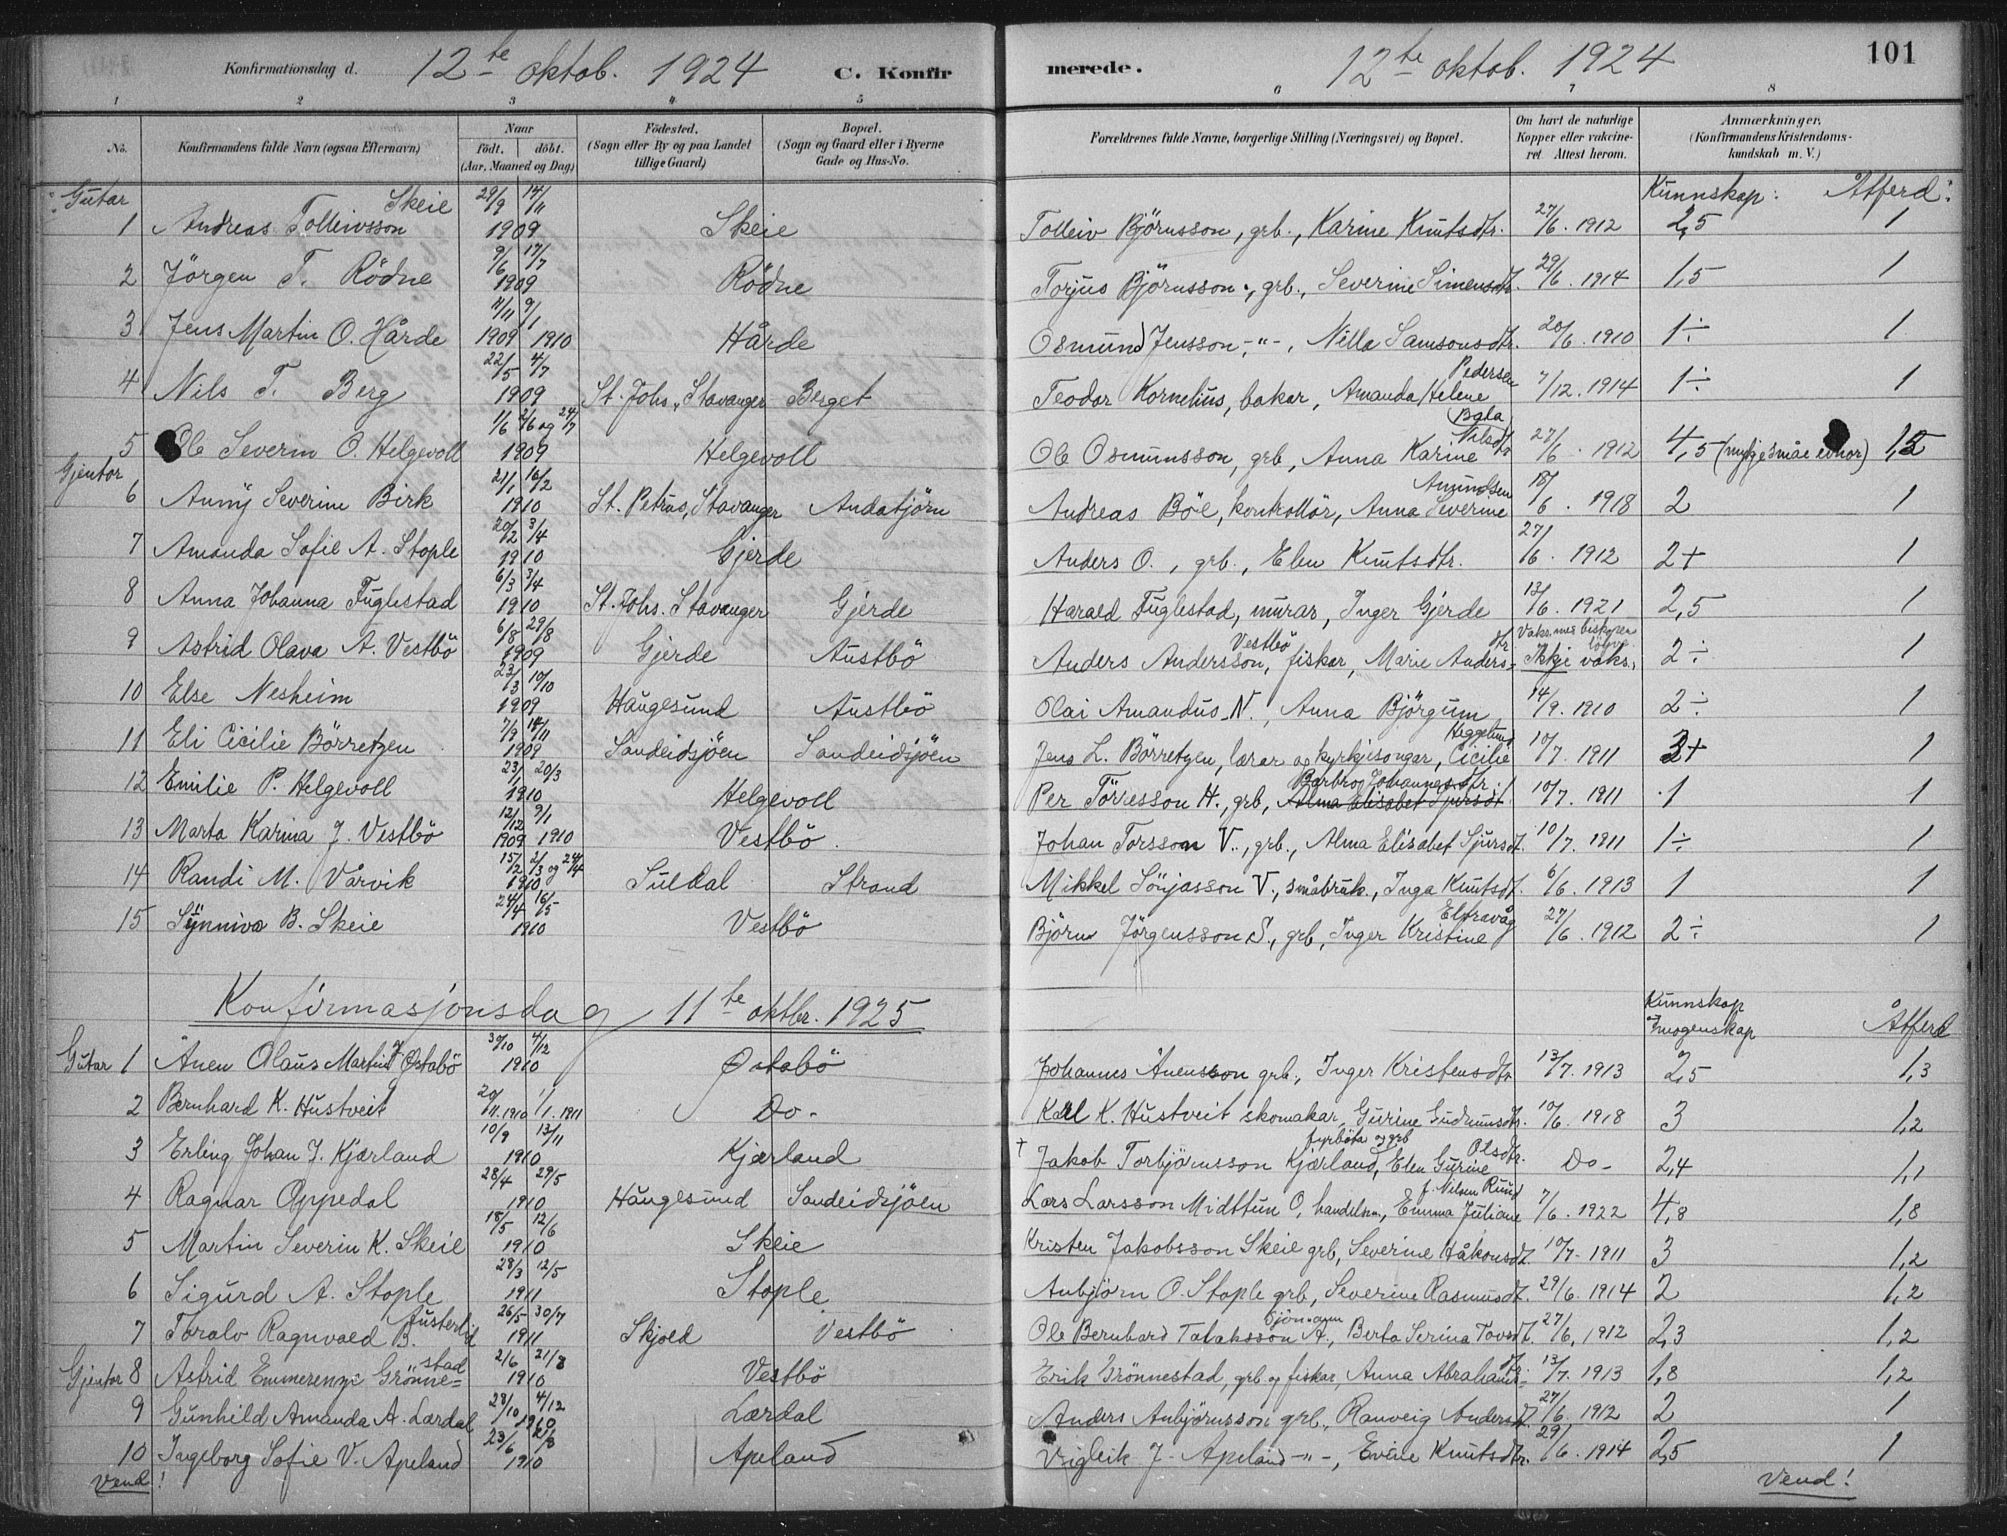 Konfirmationsdag d. 12te oktob. 1924 C. Konfir merede. 12te oktob. 1924 101
1 2 3 4 5 6 7 8
No. Konfirmandens fulde Navn (ogsaa Efternavn) Naar født. døbt. (Aar, Maaned og Dag) Fødested. (Sogn eller By og paa Landet tillige Gaard) Bopæl. (Sogn og Gaard eller i Byerne Gade og Hus-No. Forældrenes fulde Navne, borgerlige Stilling (Næringsvei) og Bopæl. Om havt de naturlige Kopper eller vakcineret Attest herom. Anmærkninger. (Konfirmandens Kristendomskundskab m. V.)
Gutar Kunnskap: Åtferd:
1 Andreas Tolleivsson Skeie 29/9 14/11 1909 Skeie Tolleiv Björnsson, grb., Karine Knutsdtr. 27/6. 1912 2,5 1
2 Jörgen T. Rödne 9/6 17/7 1909 Rödne Torjus Björnsson, grb., Severine Simensdtr. 29/6. 1914 1,5 1
3 Jens Martin O. Hårde 11/11 9/1 1909 1910 Hårde Osmund Jensson, -"-, Nilla Samsonsdtr. 20/6. 1910 1÷ 1
4 Nils T. Berg 22/5 4/7 1909 St. Johs., Stavanger Berget Teodor Kornelius, bakar, Amanda Helene Pedersen 7/12. 1914 1÷ 1
5 Ole Severin O. Helgevoll 1/6 2/6 og 24/7 1909 Helgevoll Ole Osmunsson, grb, Anna Karine Nilsdtr 27/6. 1912 4,5 (mykje småe evnor) 1,5
Gjentor
6 Anny Severine Birk 21/1 16/2 1910 St. Petrus, Stavanger Andatjörn Andreas Böe, kontrollör, Anna Severine Amundsen 18/6. 1918 2 1
7 Amanda Sofie A. Stople 20/2 3/4 1910 Gjerde Anders O., grb., Elen Knutsdtr. 27/6. 1912 2+ 1
8 Anna Johanna Fuglestad 6/3 3/4 1910 St. Johs. Stavanger Gjerde Harald Fuglestad, murar, Inger Gjerde 13/6. 1921 2,5 1
9 Astrid Olava A. Vestbö 6/8 29/8 1909 Gjerde Austbö Anders Andersson Vestbö, fiskar, Marie Andersdtr Ikkje vaks. Vaks. med biskopen löyve 2÷ 1
10 Else Nesheim 23/3 10/10 1909 Haugesund Austbö Olai Amandus N., Anna Björgum 14/9. 1910 2÷ 1
11 Eli Cicilie Börretzen 7/9 14/11 1909 Sandeidsjöen Sandeidsjöen Jens L. Börretzen, lærar og kyrkjesongar, Cicilie Heggelund 10/7. 1911 3+ 1
12 Emilie P. Helgevoll 23/1 20/3 1910 Helgevoll Per Törresson H., grb, Barbro Johannesdtr. 10/7. 1911 1 1
13 Marta Karina J. Vestbö 12/12 9/1 1909 1910 Vestbö Johan Torsson V., grb., Alma Elisabet Sjursdt. 10/7. 1911 1÷ 1
14 Randi M. Vårvik 15/2 2/3 og 24/4 1910 Suldal Strand Mikkel Sönjasson V., småbruk., Inga Knutsdt. 6/6. 1913 1 1
15 Synniva B. Skeie 24/4 16/5 1910 Vestbö Björn Jörgensson S., grb, Inger Kristine Eltravåg 27/6. 1912 2÷ 1
Konfirmasjonsdag 11te oktbr. 1925 Kunnskap Åtferd
Gutar 1 Ånen Olaus Martin J Østabö 30/10 4/12 1910 Østabö Johannes Ånensson grb., Inger Kristensdtr 13/7. 1913 2,5 1,3
2 Bernhard K. Hustveit 20/11.1910 1/1.1911 Do- Karl K. Hustveit skomakar, Gurine Gudmunsdtr. 10/6. 1918 3 1,2
3 Erling Johan J. Kjærland 10/9 13/11 1910 Kjærland † Jakob Torbjörnsson Kjærland, fyrböta og grb Elen Gurine Olsdtr. Do- 2,4 1,1
4 Ragnar Oppedal 28/4 29/5 1910 Haugesund Sandeidsjöen Lars Larsson Midttun O, handelsm, Emma Juliane f. Nilsen Ruud 7/6. 1922 4,8 1,8
5 Martin Severin K. Skeie 18/5 12/6 1910 Skeie Kristen Jakobsson Skeie grb, Severine Håkonsdt. 10/7. 1911 3 1,2
6 Sigurd A. Stople 28/3 12/5 1911 Stople Anbjörn O. Stople grb, Severine Rasmusdt. 29/6. 1914 2 1,2
7 Toralv Ragnvald B. Austerlid 26/5 30/7 1911 Skjold Vestbö Ole Bernhard Tolaksson A., sjömann Berta Serina Tovsdt. 27/6, 1912 2,3 1,2
Gjentor 8 Astrid Emmerenze Grönnestad 2/6 21/8 1910 Vestbö Erik Grönnestad, grb og fiskar, Anna Abrahamsdtr. 13/7. 1913 1,8 1,2
9 Gunhild Amanda A. Lærdal 28/10 4/12 1910 Lærdal Anders Anbjörnsson grb., Ranveig Andersdt. 27/6. 1912 2 1
10 Ingeborg Sofie V. Apeland 23/6 21/8 1910 Apeland Vigleik J. Apeland -"-, Evine Knutsdtr. 29/6. 1914 2,5 1
Vend! Vend!